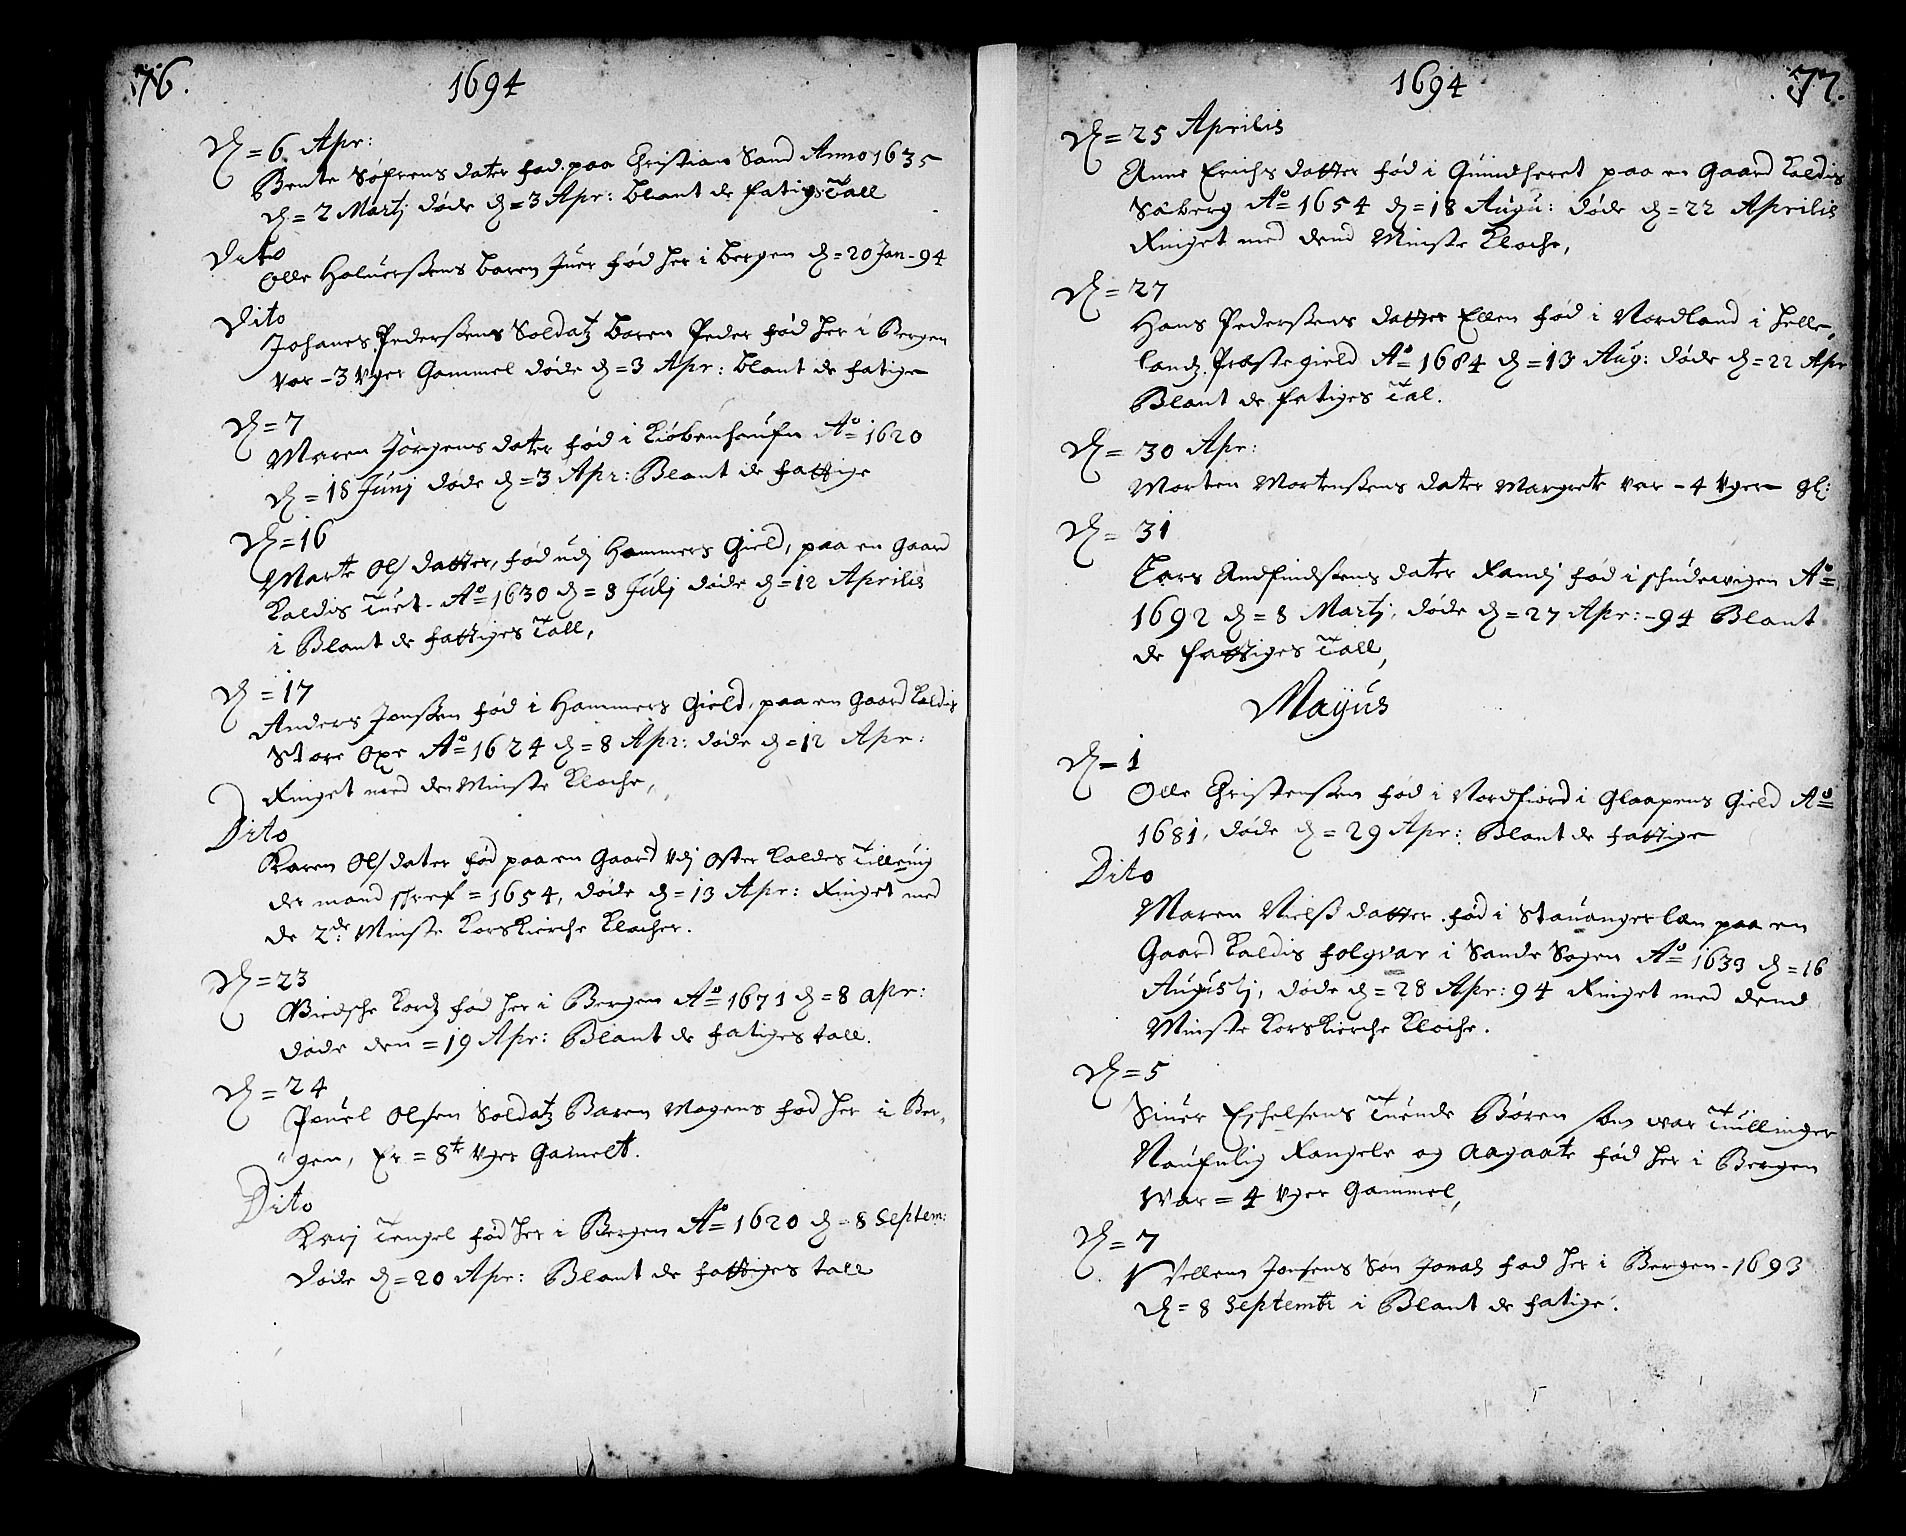 76.
1694
D = 6 Apr:
Bente Søfrens dater fød paa Christian Sand Anno 1635
D = 2 Martj døde D = 3 Apr: blant de fatigs Tall
Dito
Olle Haluerssens baren Juer fød her i bergen D = 20 Jan - 94
Dito
Johanes Pederssens Soldatz baren Peder fød her i Bergen
var - 3 Vger Gammel døde D = 3 Apr: blant de fatige
D = 7
Maren Jørgens dater fød i Kiøbenhaufn Ao 1620
D = 18 Junj døde D = 3 Apr: Blant de fattige
D = 16
Marte Ols datter, fød udj Hammers Gield, paa en Gaard
Kaldis Tuet - Ao 1630 D = 8 Julj døde D = 12 Aprilis
i Blant de fattiges Tall,
D = 17
Anders Jonssen fød i Hammers Gield, paa en Gaard Kaldis
Store Oxe Ao 1624 D = 8 Apr: døde D = 12 Apr:
Ringet med den Minste Kloche,
Dito
Karen Ols dater fød paa en Gaard Vdj Oster Kaldes Tilleuig
der mand schref = 1654, døde D = 13 Apr: Ringet med
de 2de Minste Korskierche Klocher.
D = 23
Giedsche Kordz fød her i Bergen Ao 1671 D = 8 apr:
døde den = 19 Apr: Blant de fatiges tall.
D = 24
Pouel Olsen Soldatz Baren Magens fød her i Ber,
gen, Er = 8te Vger Gamelt.
Dito
Karj Tengel fød her i Bergen Ao 1620 D = 8 Septem:
Døde D = 20 Apr: Blant de fattiges tall
1694
77.
D = 25 Aprilis
Anne Erichs datter fød i Quindheret paa en Gaard Kaldis
Säberg Ao 1654 D = 18 Augu: døde D = 22 Aprilis
Ringet med dend Minste Kloche,
D = 27
Hans Pederssens datter Ellen fød i Nordland i Helle,
landz Præstegield Ao 1684 D = 13 Aug: døde D = 22 Apr
Blant de fatiges Tal.
D = 30 Apr:
Morten Mortenssens dater Margrete var - 4 Vger gl:
D = 31
Lars Andfindssens dater Randj fød i schudewigen Ao
1692 D = 8 Martj, døde D = 27 Apr: - 94 Blant
de fattiges Tall,
Mayus
D = 1
Olle Christenssen fød i Nordfiord i Glaapens Gield Ao
1681, døde D = 29 Apr: Blant de fattige
Dito
Maren Nielss datter fød i Stauanger læn paa en
Gaard Kaldis folgvar i Sande Sogen Ao 1633 D = 16
Augustj, døde D = 28 Apr: 94 Ringet med dend
Minste Korskierche Kloche.
D = 5
Siuer Eschelsens Tuende Børen som war Tuillinger
Naufnlig Rangele og Aagaate fød her i Bergen
War = 4 Vger Gammel,
D = 7
Vellem Jonsens Søn Jonas fød her i Bergen - 1693
D = 8 Septembr i Blant de fatige.